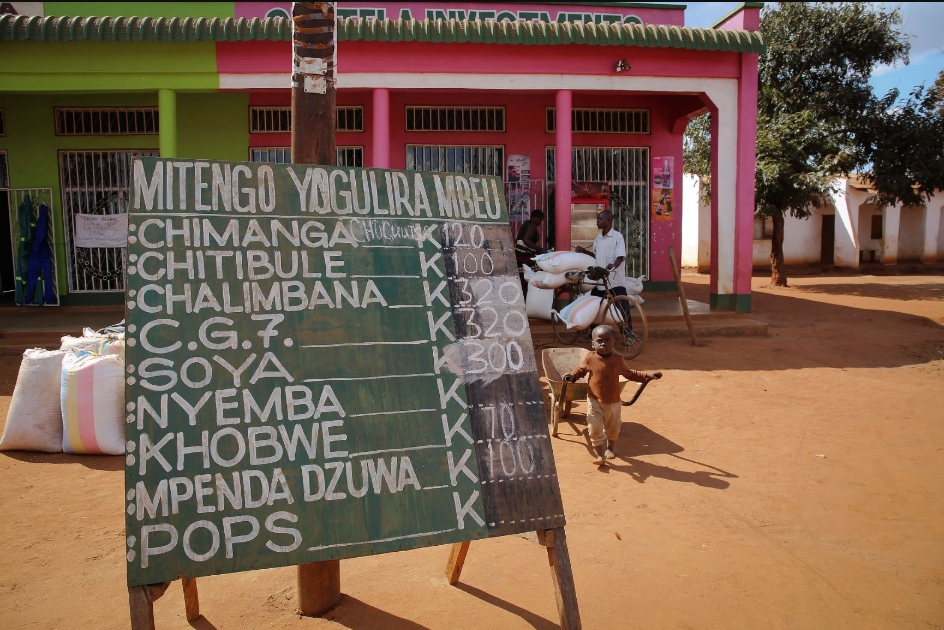 INVESTMENTS
MITENGO YOGULIRA MBEU
:CHIMANGA K 120
:CHITIBULE K 100
:CHALIMBANA K 320
:C.G.7. K 320
:SOYA K 300
:NYEMBA K
:KHOBWE K 70
:MPENDA DZUWA K 100
:POPS K